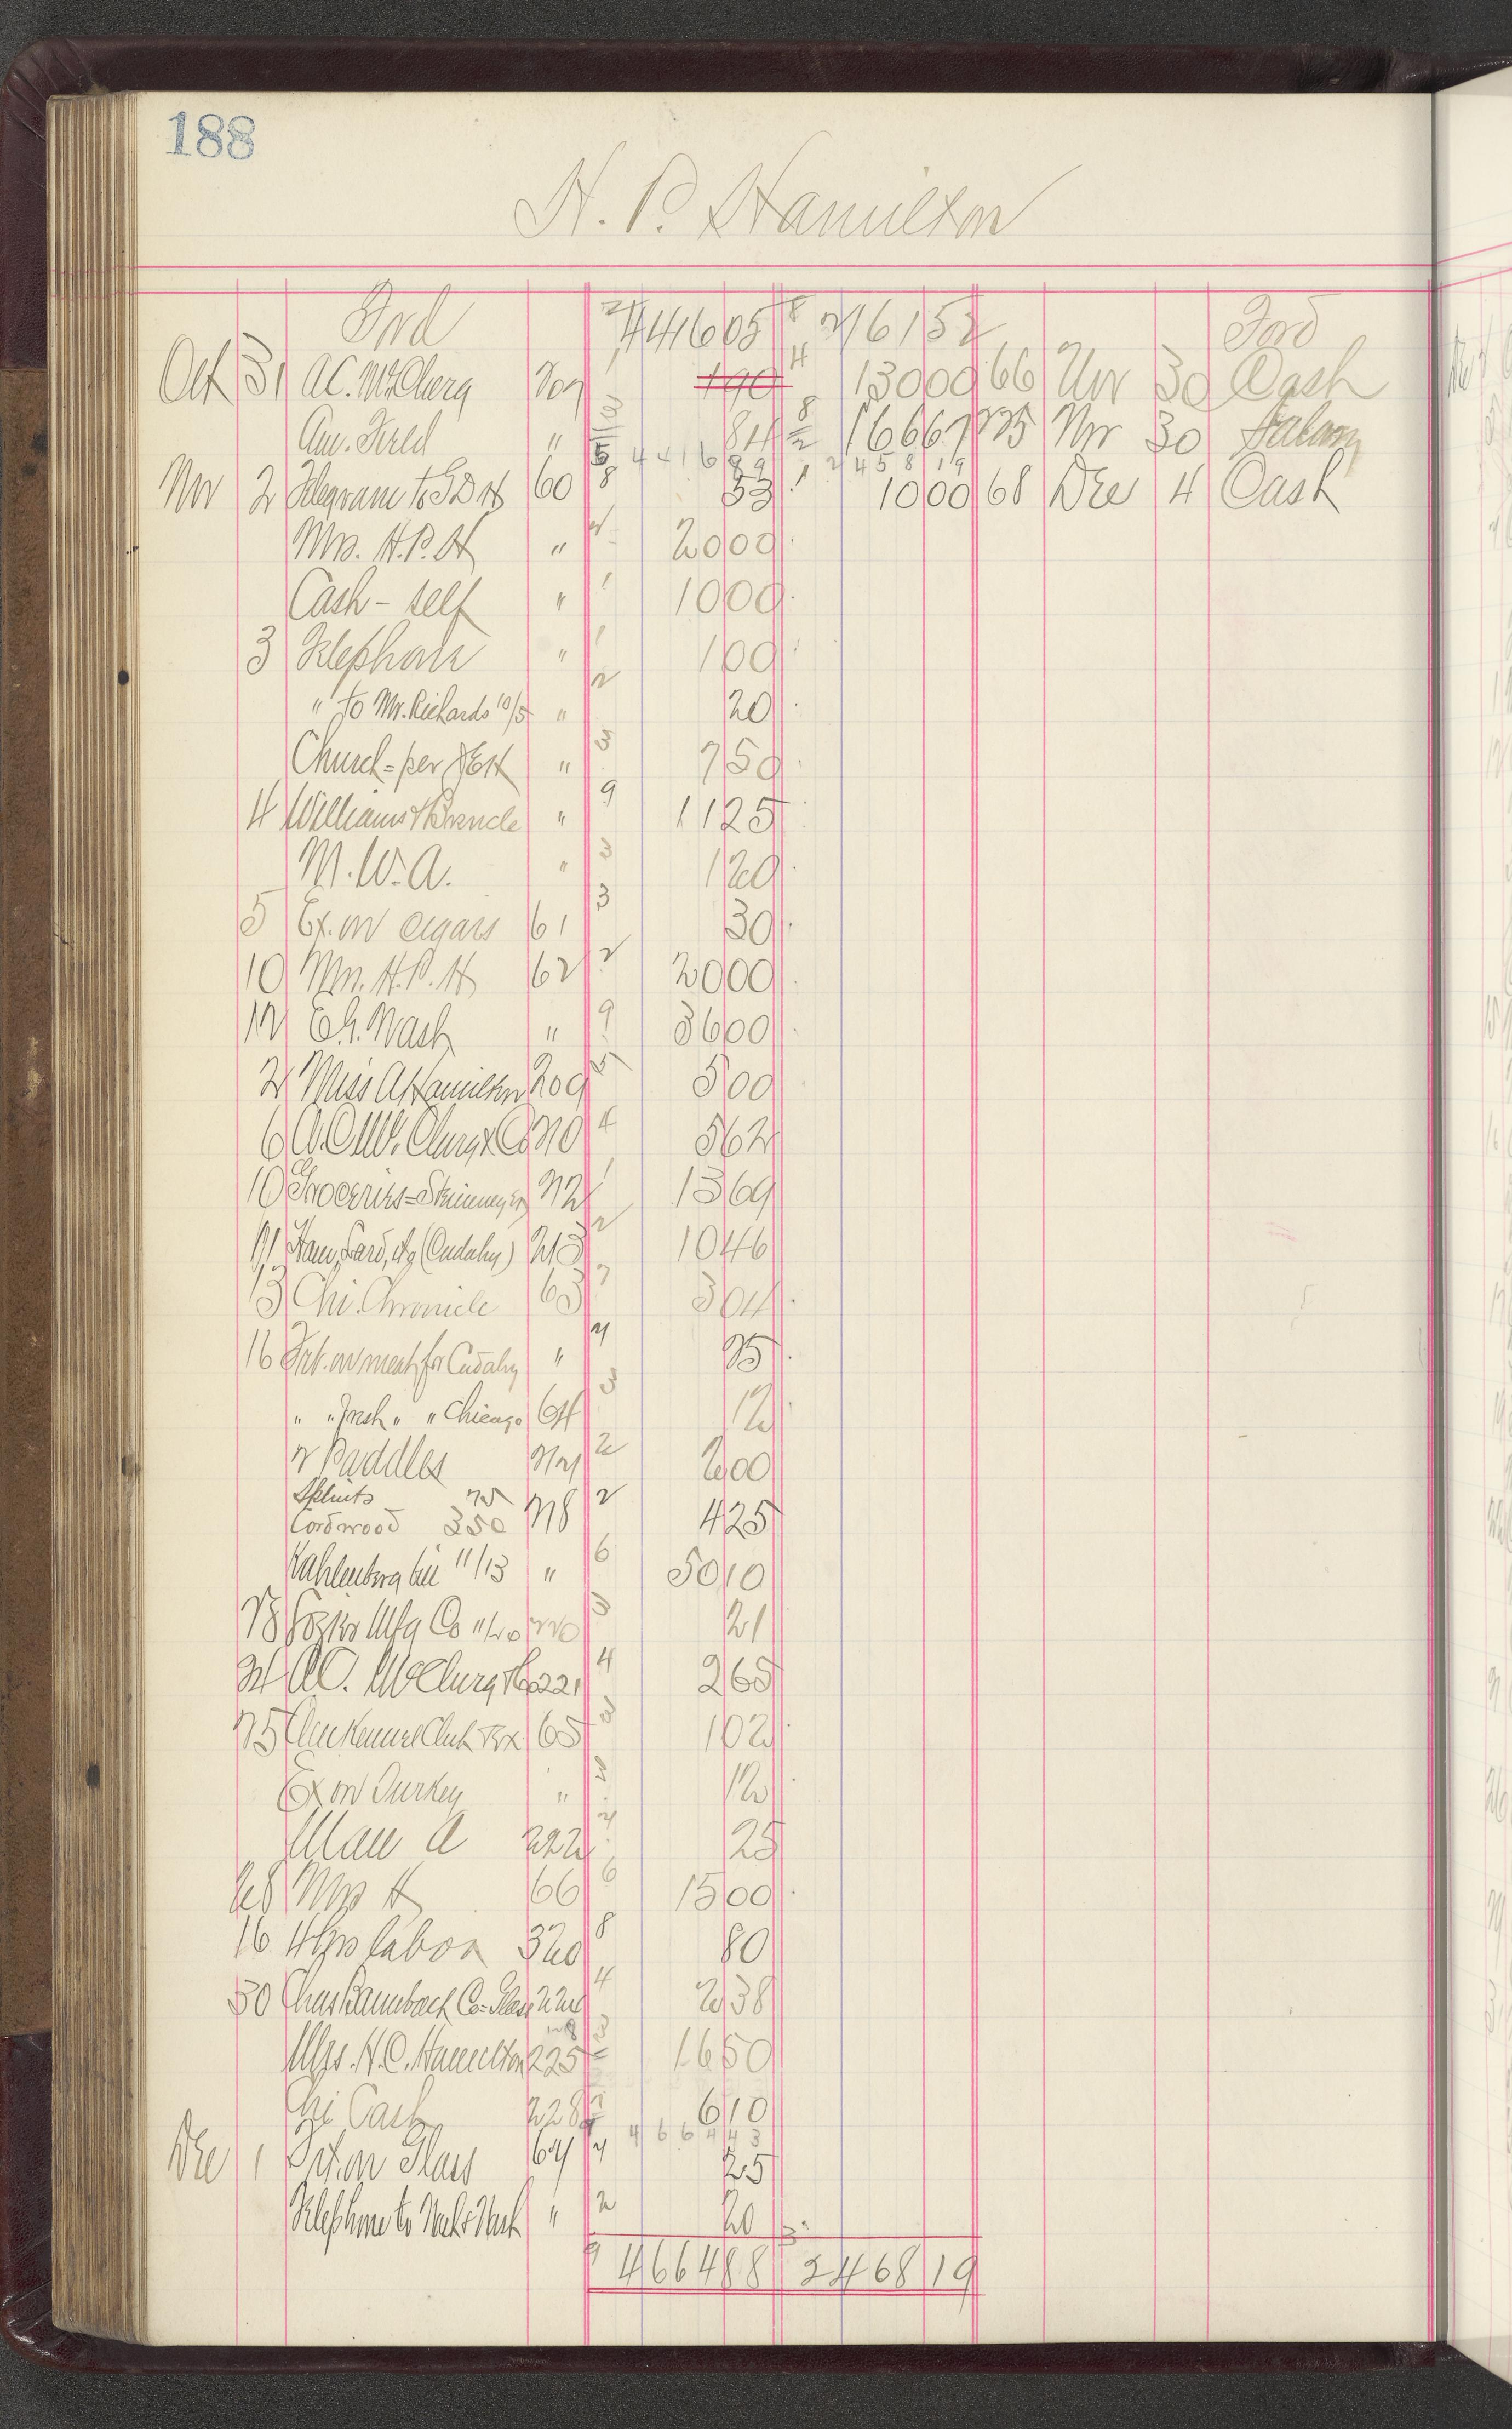 188
H. P. Hamilton
Ford 441605 216152 Ford
Oct 31 A.C. McClurg 207 190 13000 66 Nov 30 Cash
Am. Field " 84 16667 225 Nov 30 Salary
441689 245819
Nov 2 Telegram to G D H 60 53 1000 68 Dec 4 Cash
Mrs. H.P.H " 2000
Cash - self " 1000
3 Telephone " 100
" to Mr. Richards 10/5 " 20
Church = per JEH " 750
4 Williams & " 1125
M.W.A. " 120
5 Ex. on cigars 61 30
10 Mrs. H.P.H 62 2000
12 E.G. Nash " 3600
2 Miss A Hamilton 209 500
6 A.C. Mc. Clurg & Co 210 562
10 Groceries = 212 1369
11 Ham, Lard, (Cudahy) 213 1046
13 Chi. Chronicle 63 304
16 Frt. on meat for Cudahy " 25
" " " " Chicago 64 12
2 Paddles 217 200
Splints 75
Cordwood 350 218 425
Kahlenberg bill 11/13 " 5010
18 Mfg Co 11/20 220 21
24 A.C. McClurg & Co 221 265
25 Am Kennel Club 65 102
Ex on Turkey " 12
222 25
28 Mrs H 66 1500
16 4 hrs labor 320 80
30 Chas Co = Glass 224 238
Mrs. H.C. Hamilton 225 1650
Cash 228 610
466443
Dec 1 Frt. on Glass 67 25
Telephone to " 20
466488 246819